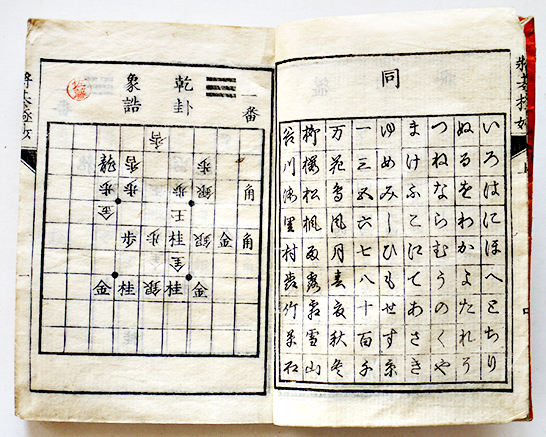 同
いろはにほへとちり
ぬるをわかよたれそ
つねならむうのくや
まけふこえてあさき
ゆめみしひもせす京
一三五六七八十百千
万花鳥風月春夏秋冬
柳桜松楓雨露霜雪山
谷川海里村岩竹草石
一番
乾卦
象詰
香
歩 香 龍
角 銀 歩 歩 歩
王 金
角 金 銀 桂 歩 歩
金
金 桂 銀 桂 金